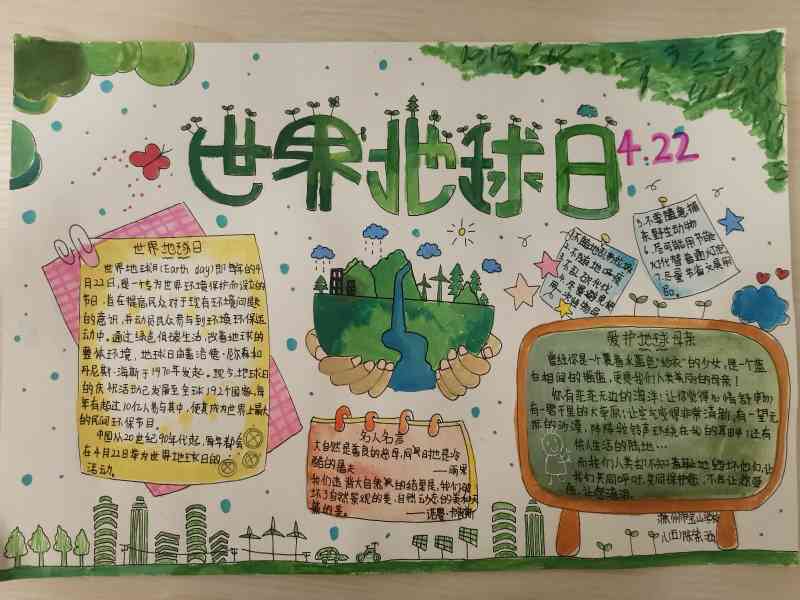 世界地球日
4.22
世界地球日
世界地球日(Earth day)即每年的4
月22日,是一个专为世界环境保护而设立的
节日,旨在提高民众对于现有环境问题
的意识,并动员民众参与到环境环保运
动中,通过绿色低碳生活,改善地球的
整体环境,地球日由盖洛德·尼尔森和
丹尼斯·海斯于1970年发起。现今地球日
的庆祝活动已发展至全球192个国家,每
年有超过10亿人参与其中,使其成为世界上最大
的民间环保节日。
中国从20世纪90年代起,每年都会
在4月22日举办世界地球日的
活动。
名人名言
大自然是善良的慈母,同时也是冷
酷的屠夫
——雨果
我们违背大自然的结果是,我们破
坏了自然景观的美,自然动态的美和天
籁的美。
——诺曼·卡曾斯
2.不随地
3.不乱砍伐
5.不要随意捕
杀野生动物
6.尽可能用节能
灯代替普通灯泡
7.尽量少看
爱护地球母亲
曾经你是一个裹着水蓝色"纱衣"的少女,是一个蓝
白相间的摇篮,更是我们人类美丽的母亲!
你有无无边的海洋!让你觉得心情舒畅
有一望千里的大草原!让空气变得非常清新,有一望无
际的沙漠,阵阵驼铃声环绕在我的耳畔!还有
供人生活的陆地…
而我们人类却不知羞耻地毁坏他们,让
我们共同呼吁,共同保护她,不再让她受
伤,让她流泪。
八(五)陈